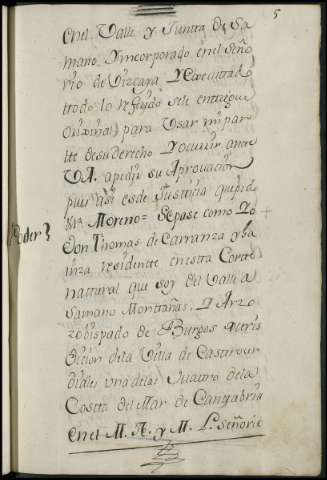 5
en el Valle y Juntta de Sa
mano, Yncorporado en el Seño
rio de Vizcaya, Y executtad
ttodo lo referido se le entregue
Original para Usar mi par
tte de su derecho Y ocurrir antte
V.A. a pedir su Aprovacion
pues asi es de Justicia que pide
Moreno = Sepase como Yo
Poder
Don Thomas de Carranza y La
inza residentte en estta Cortte
nattural que soy del Valle a
Samano Monttañas, Y Arzo
zobispado de Burgos Juris
dicion de la Villa de Castro ur
diales una de las Quattro de la
Costta del Mar de Canttabria
en el M. N. y M. L. Señorio